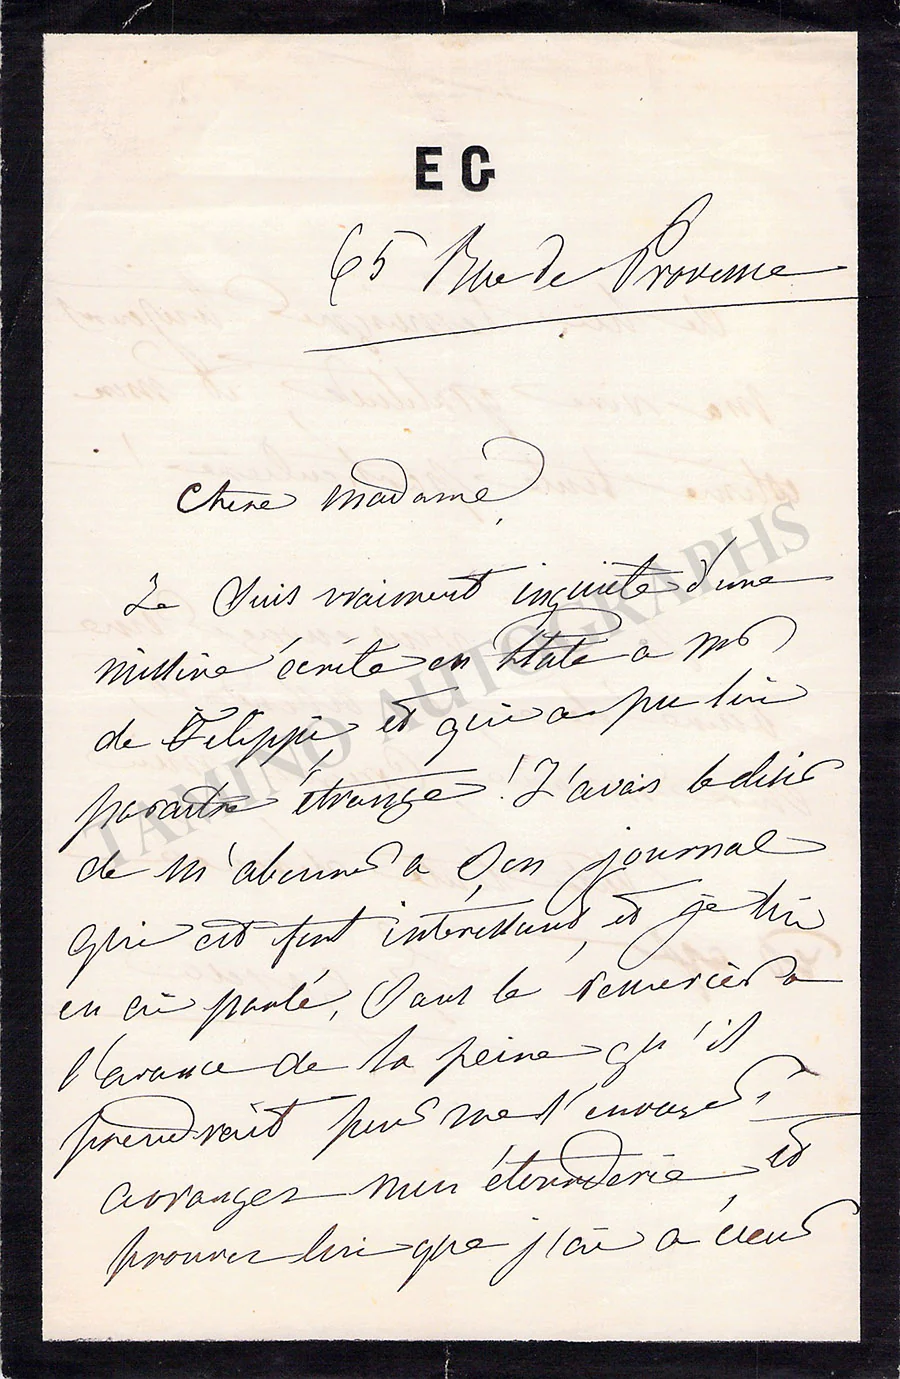 EG
65 Rue de Provence
Chère Madame,
Je suis vraiment inquiète d'une
missive écrite en hâte a Mr
de Filippi, et qui a pu lui
paraitre étrange! J'avais le désir
de m'abonner a son journal
qui est fort intéressant, et je lui
en ai parlé, sans le remercier a
l'avance de la peine qu'il
prendrait pour me l'envoyer,
arrangez mon étourderie et
prouvez lui que j'ai a cœur
TAMINO AUTOGRAPHS